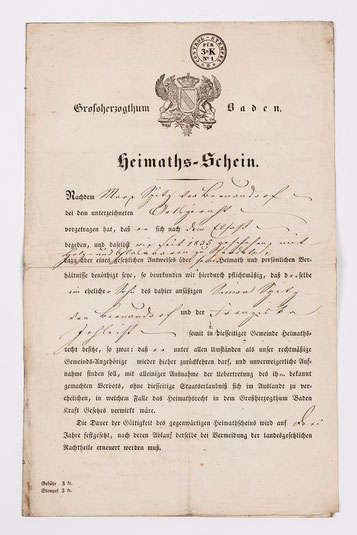 CONTROL-STEMPEL
FÜR
3 K
No 1
Großherzogthum Baden.
Heimaths-Schein.
Nachdem
bei dem unterzeichneten Ortsgericht
vorgetragen hat, daß er sich nach dem Elsaß
begeben, und daselbst wie seit 1835 geschehen, mit
dazu aber eines gesetzlichen Ausweises über Heimath und persönlichen Ver-
hältnisse benöthigt seye, so beurkunden wir hierdurch pflichtmäßig, daß derselbe
ein ehelicher Sohn des dahier ansäßigen Simon Spitz
und der
somit in diesseitiger Gemeinde Heimaths-
recht besitze, so zwar: daß er unter allen Umständen als unser rechtmäßige
Gemeinds-Angehörige wieder hieher zurückkehren darf, und unverweigerliche Auf-
nahme finden soll, mit alleiniger Ausnahme der Uebertretung des ihm bekannt
gemachten Verbots, ohne diesseitige Staatserlaubniß sich im Auslande zu ver-
ehelichen, in welchem Falle das Heimathsrecht in dem Großherzogthum Baden
Kraft Gesetzes verwirkt wäre.
Die Dauer der Gültigkeit des gegenwärtigen Heimathscheins wird auf drei
Jahre festgesetzt, nach deren Ablauf derselbe bei Vermeidung der landesgesetzlichen
Nachtheile erneuert werden muß.
Gebühr 3 kr.
Stempel 3 kr.